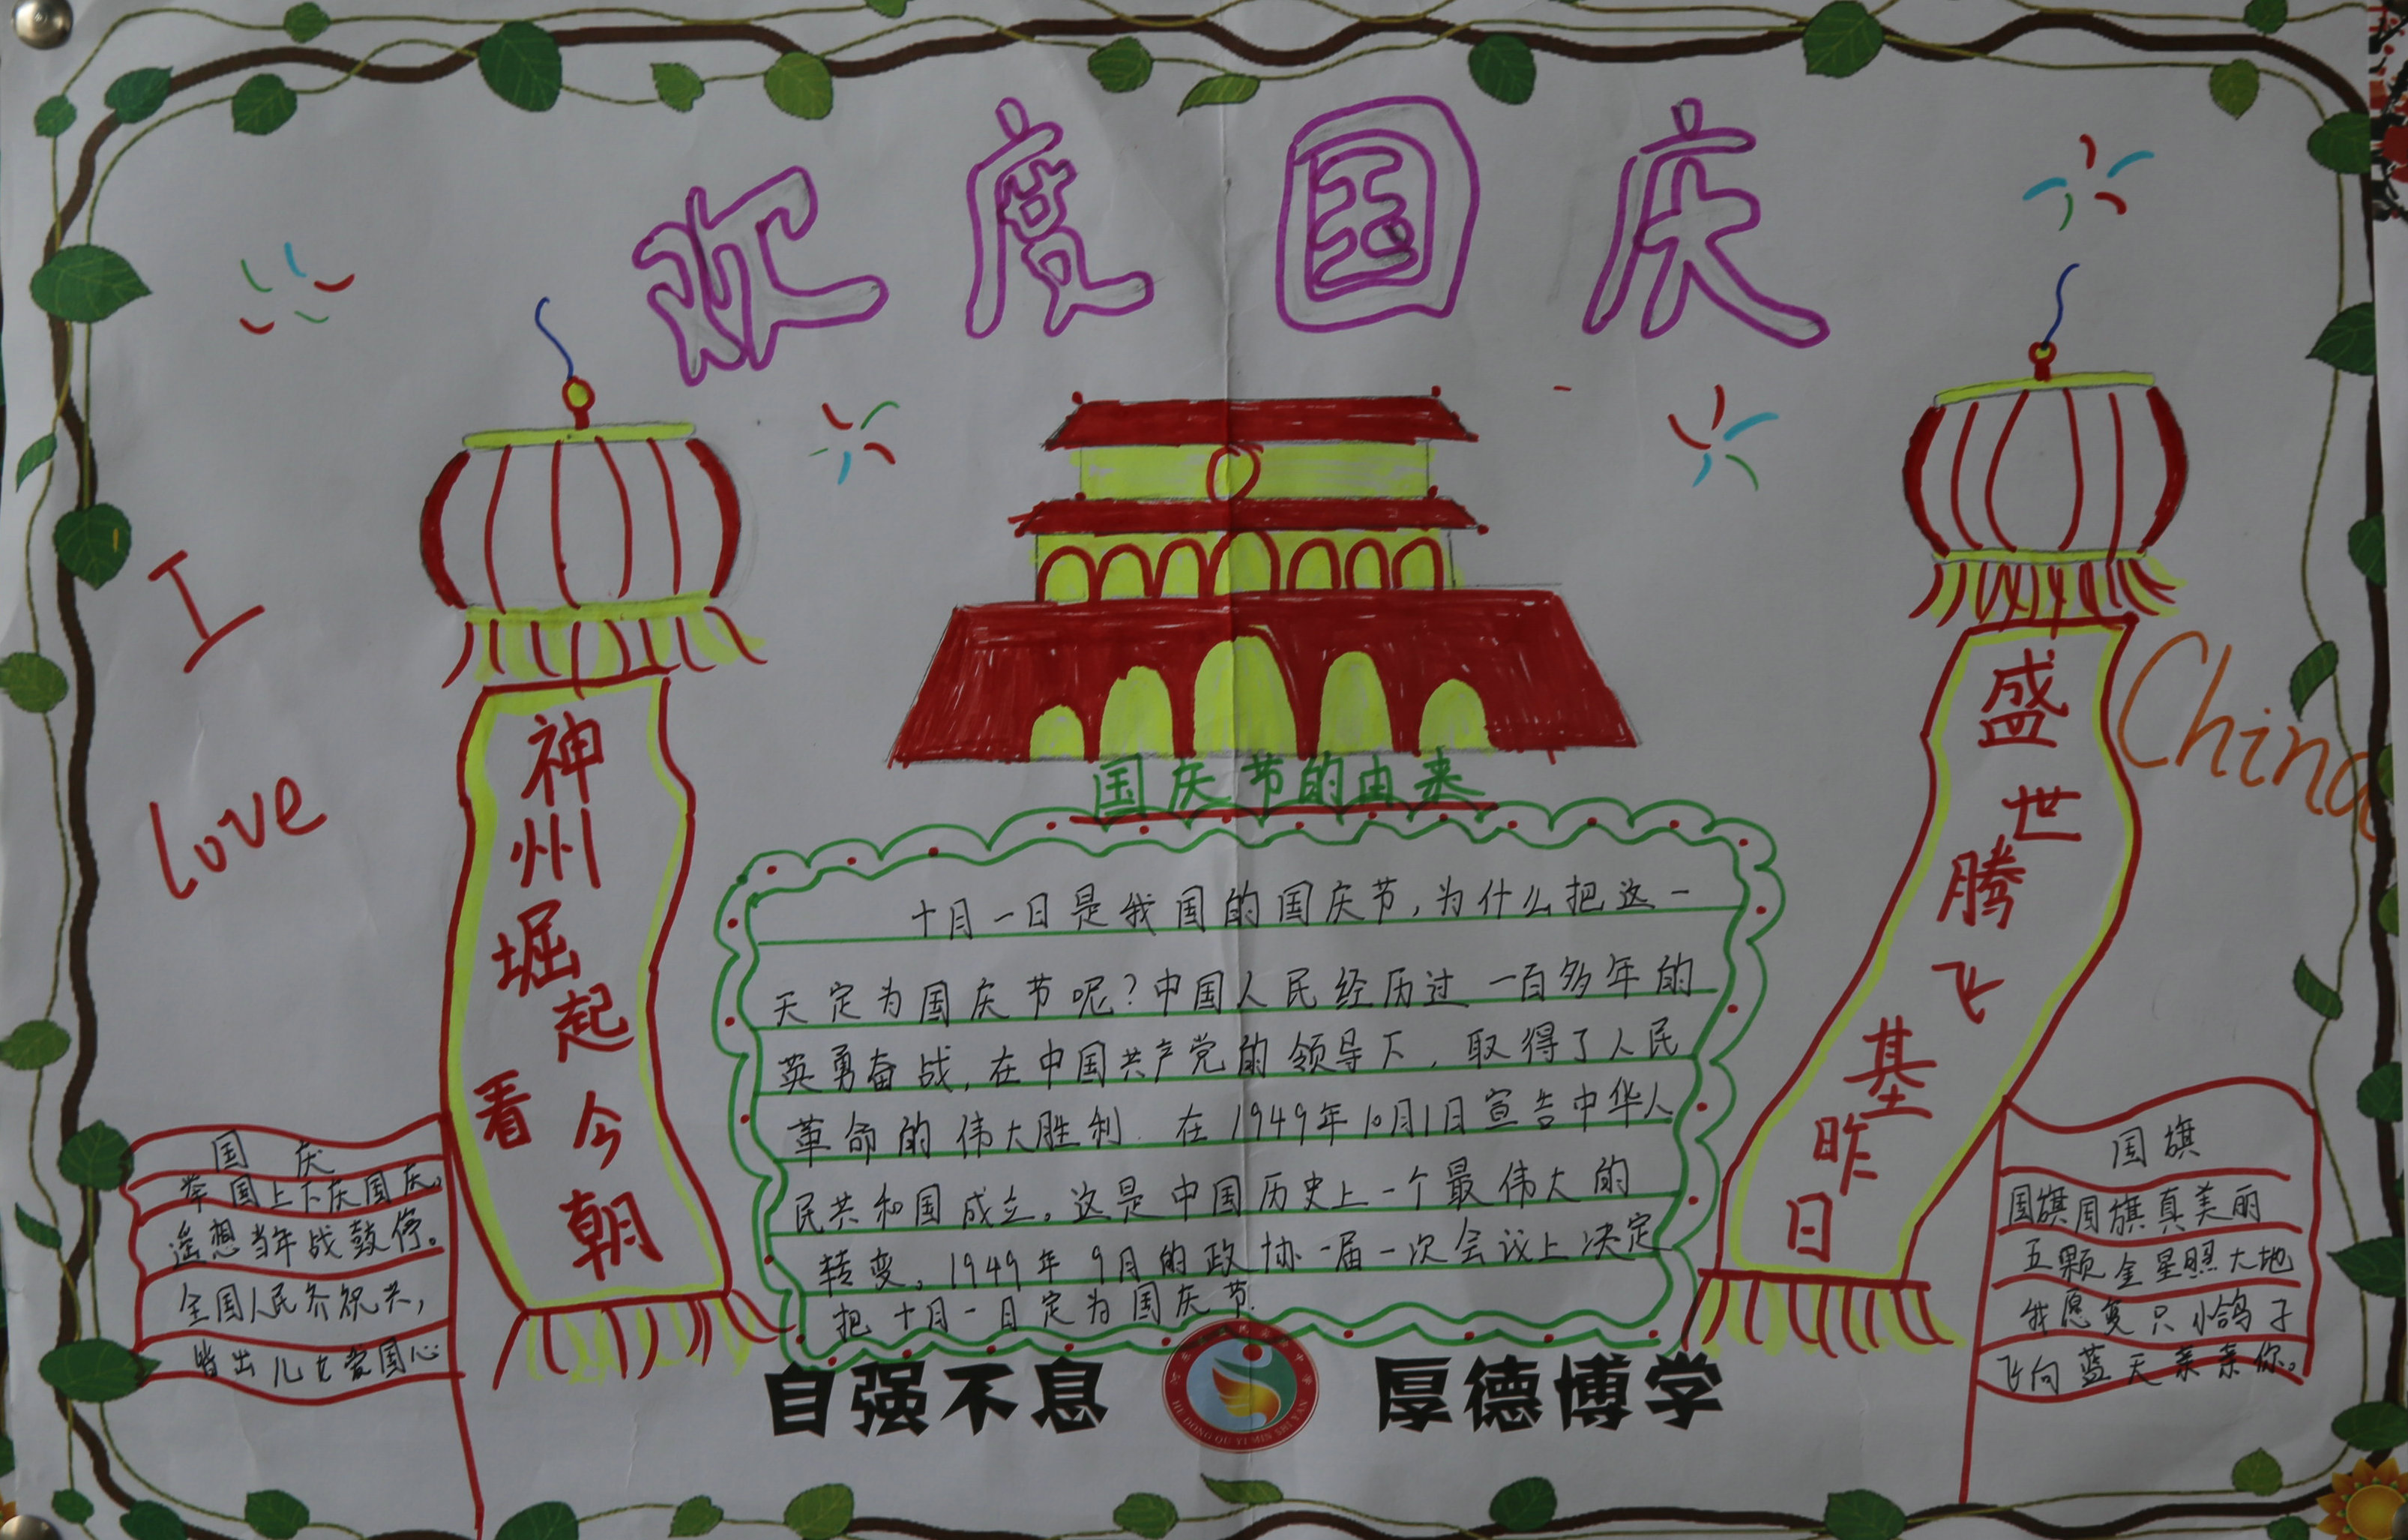 欢度国庆
I
love
China
神州堀起看今朝
盛世腾飞基昨日
国庆节的由来
十月一日是我国的国庆节,为什么把这一
天定为国庆节呢?中国人民经历过一百多年的
英勇奋战,在中国共产党的领导下,取得了人民
革命的伟大胜利.在1949年10月1日宣告中华人
民共和国成立。这是中国历史上一个最伟大的
转变。1949年9月的政协一届一次会议上决定
把十月一日定为国庆节.
国庆
举国上下庆国庆,
遥想当年战鼓停。
全国人民齐祝兴,
皆出儿女爱国心
国旗
国旗国旗真美丽
五颗金星照大地
我愿变只小鸽子
飞向蓝天亲亲你。
自强不息 厚德博学
HE DONG QU YI MIN SHI YAN